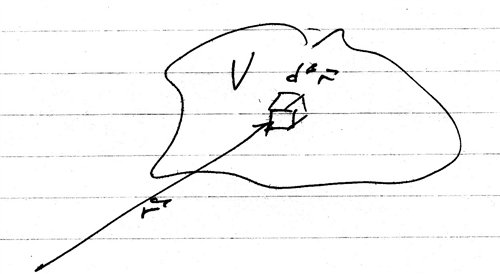 V
d³r⃗
r⃗